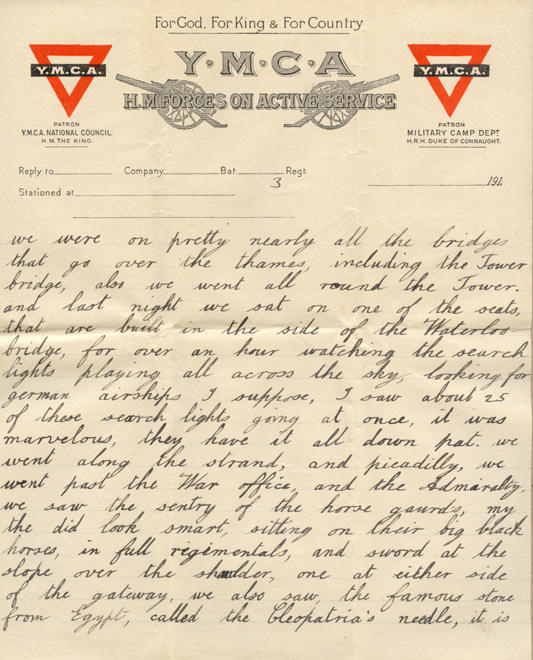 For God, For King & For Country
Y·M·C·A
H.M FORCES ON ACTIVE SERVICE
Y.M.C.A.
PATRON
Y.M.C.A. NATIONAL COUNCIL.
H.M. THE KING.
Y.M.C.A.
PATRON
MILITARY CAMP DEPT
H.R.H. DUKE OF CONNAUGHT.
Reply to Company Bat. Regt.
3
Stationed at 191
we were on pretty nearly all the bridges
that go over the thames, including the Tower
bridge, also we went all round the Tower.
and last night we sat on one of the seats,
that are built in the side of the Waterloo
bridge, for over an hour watching the search
lights playing all across the sky, looking for
german airships I suppose, I saw about 25
of these search lights going at once, it was
marvelous, they have it all down pat. we
went along the strand, and picadilly, we
went past the War office, and the Admiralty,
we saw the sentry of the horse gaurds, my
the did look smart, sitting on their big black
horses, in full rigementals, and sword at the
slope over the shoulder, one at either side
of the gateway, we also saw, the famous stone
from Egypt, called the Cleopatria's needle, it is